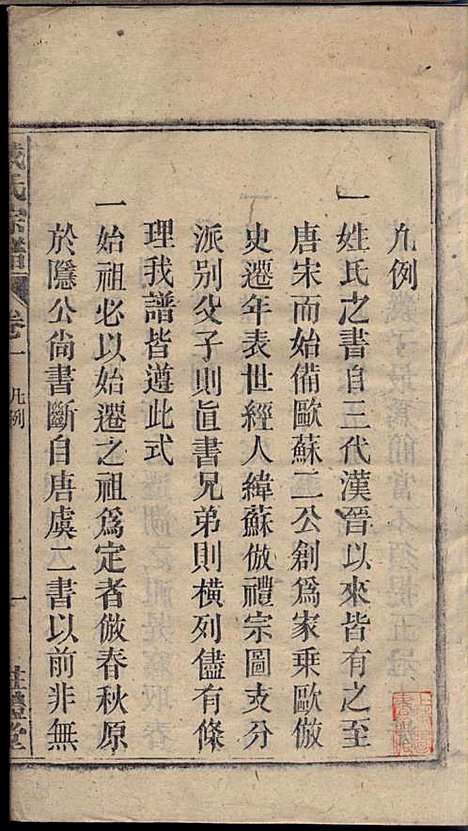 凡例
一姓氏之書自三代漢晉以來皆有之至
唐宋而始備歐蘇二公創爲家乘歐倣
史遷年表世經人緯蘇倣禮宗圖支分
派別父子則眞書兄弟則橫列儘有條
理我譜皆遵此式
一始祖必以始遷之祖爲定者倣春秋原
於隱公尙書斷自唐虞二書以前非無
氏宗譜
卷一
凡例
一
禮堂